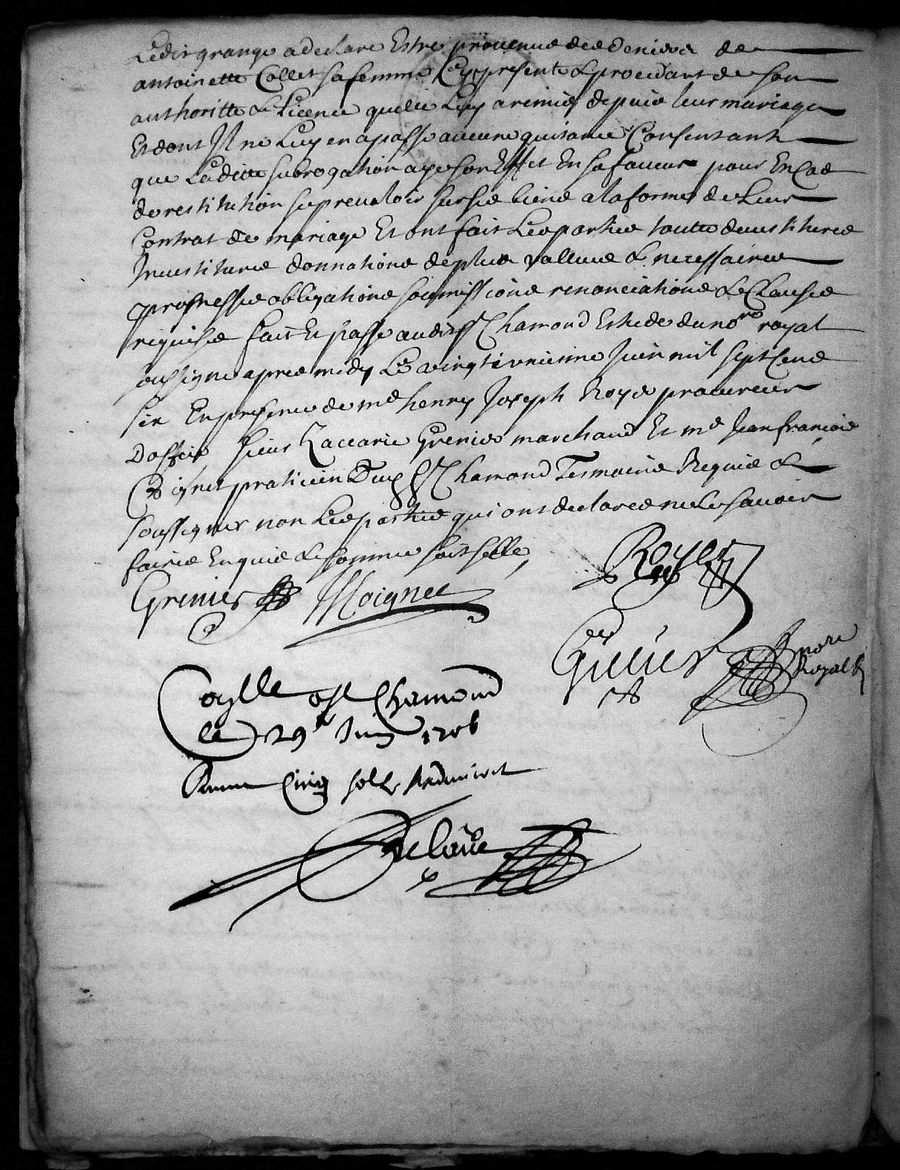 Ledit grange a declare Estre prouenue des deniers de
antoinette Collet sa femme Icy presente & procedant de son
authoritte & licence quelle luy a remis depuis leur mariage
Et dont Il ne luy en a passe aucune quitance Consentant
que Laditte subrogation aye son Effet En sa faueur pour En Cas
de restitution se preualoir sur ses biens a la forme de Leur
Contrat de mariage Et ont fait Les parties toutte deuestitures
Inuestitures donnations de plus vallues & necessaires
promesses obligations soumissions renonciations & Clauses
requises fait Et passe audit St Chamond Estude du nore royal
soussigne apres midy Le vingt Juin mil sept Cens
six En presence de me henry Joseph Roye procureur
Doffice sieur Zaccarie Grenier marchand Et me Jean francois
praticien Dudt St Chamond Tesmoins Requis &
soussignes non Les parties qui ont declare ne le sauoir
faire Enquis & sommes soit selle
Grenier Moignet Roye
nore
Royal
Coylle a St Chamond
le 29e Juin 1706
Cinq solz
Delaüe